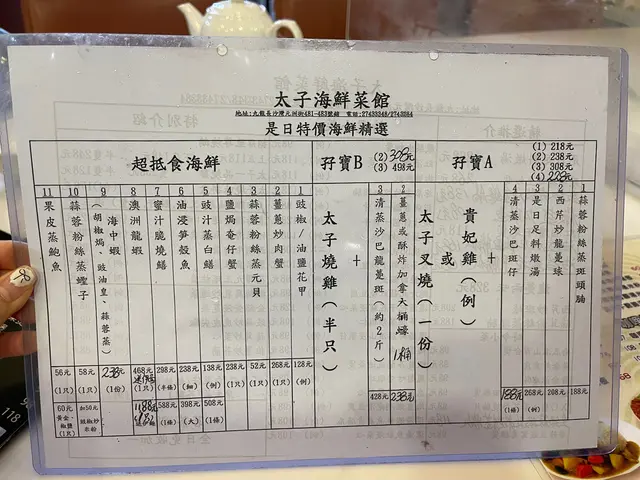 太子海鮮菜館
地址:九龍長沙灣元洲街481-483號舖 電話:27433348/2743384
是日特價海鮮精選
孖寶A
(1) 218元
(2) 238元
(3) 308元
(4) 228元
貴妃雞(例)
或
太子叉燒(一份)
+
1 蒜蓉粉絲蒸斑頭腩 188元
2 西芹炒龍躉球 208元
3 是日足料燉湯 268元 (例)
4 清蒸沙巴斑仔 188元 (1條)
孖寶B
(2) 328元
(3) 498元
太子燒雞(半只)
+
2 薑蔥或酥炸加拿大桶蠔 1桶 238元
3 清蒸沙巴龍躉斑(約2斤) 428元
超抵食海鮮
1 豉椒/油鹽花甲 128元 (例)
2 薑蔥炒肉蟹 268元 (1只)
3 蒜蓉粉絲蒸元貝 52元 (1只)
4 鹽焗奄仔蟹 238元 (1只)
5 豉汁蒸白鱔 138元 (例) 508元 (1條)
6 油浸筍殼魚 238元 (細) 398元 (大)
7 蜜汁脆燒鱔 298元 (半條) 588元 (1條)
8 澳洲龍蝦 468元 (1只) 1188元
9 海中蝦 (胡椒焗、豉油皇、蒜蓉蒸) 238元 (1份)
10 蒜蓉粉絲蒸蟶子 58元 (1只) 加50元 豉椒炒 年粉
11 果皮蒸鮑魚 56元 (1只) 60元 黃金、椒鹽 (1只)
118